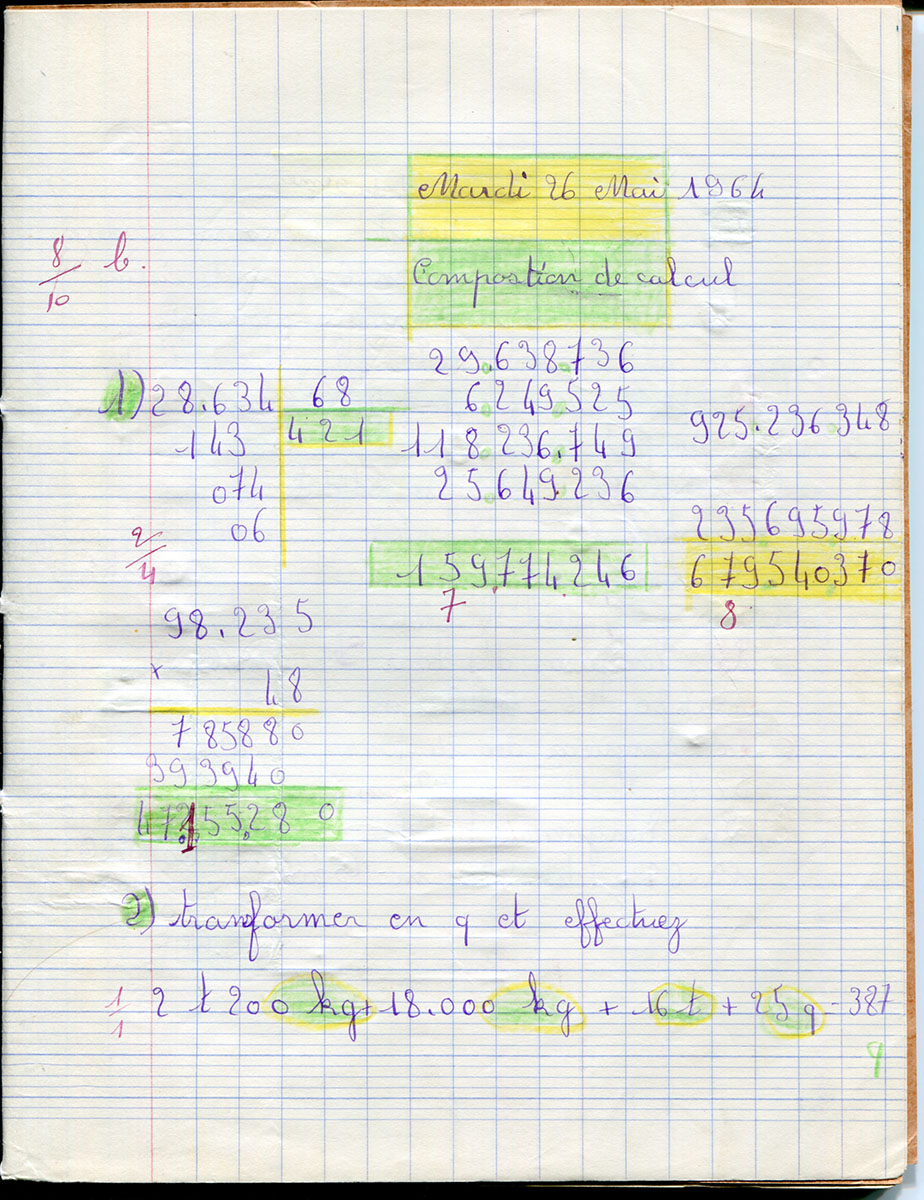 Mardi 26 Mai 1964
8/10 b.
Compostion de calcul
1) 28.634 68
143 421
074
06
2/4
29.638.736
6.249.525
118.236.749
25.649.236
159.774.246
7
925.236.348
235695978
679540370
8
98.235
x 48
785880
393940
47155280
2) tranformer en q et effectuez
1/1 2 t 200 kg + 18.000 kg + 16 t + 25 q = 387
q